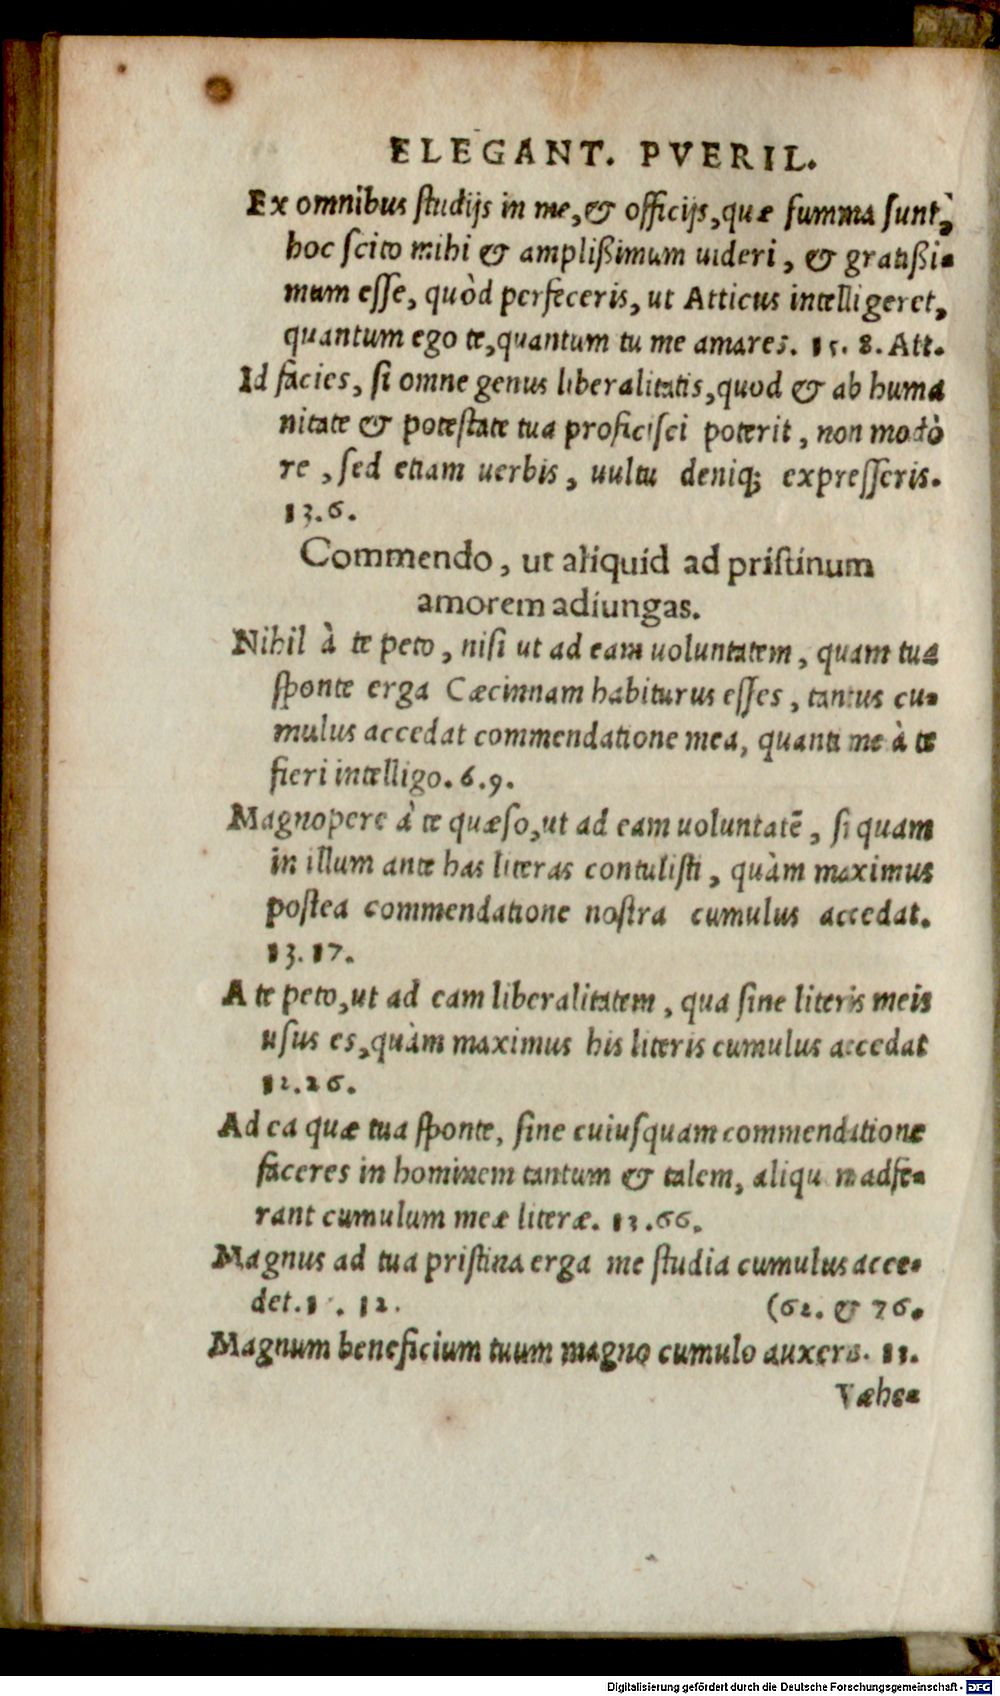 ELEGANT. PVERIL.
Ex omnibus studijs in me, & officijs, quæ summa sunt,
hoc scito mihi & amplißimum uideri, & gratißi-
mum esse, quòd perfeceris, ut Atticus intelligeret,
quantum ego te, quantum tu me amares. 15. 8. Att.
Id facies, si omne genus liberalitatis, quod & ab huma
nitate & potestate tua proficisci poterit, non modò
re, sed etiam uerbis, uultu deniq; expresseris.
13.6.
Commendo, ut aliquid ad pristinum
amorem adiungas.
Nihil à te peto, nisi ut ad eam uoluntatem, quam tua
sponte erga Cæcinnam habiturus esses, tantus cu-
mulus accedat commendatione mea, quanti me à te
fieri intelligo. 6.9.
Magnopere à te quæso, ut ad eam uoluntatẽ, si quam
in illum ante has literas contulisti, quàm maximus
postea commendatione nostra cumulus accedat.
13.17.
A te peto, ut ad eam liberalitatem, qua sine literis meis
usus es, quàm maximus his literis cumulus accedat
12.26.
Ad ea quæ tua sponte, sine cuiusquam commendatione
faceres in hominem tantum & talem, madfe-
rant cumulum meæ literæ. 13.66.
Magnus ad tua pristina erga me studia cumulus acce-
det. 12. (62. & 76.
Magnum beneficium tuum magno cumulo auxeris. 13.
Væhe-
Digitalisierung gefördert durch die Deutsche Forschungsgemeinschaft - DFG